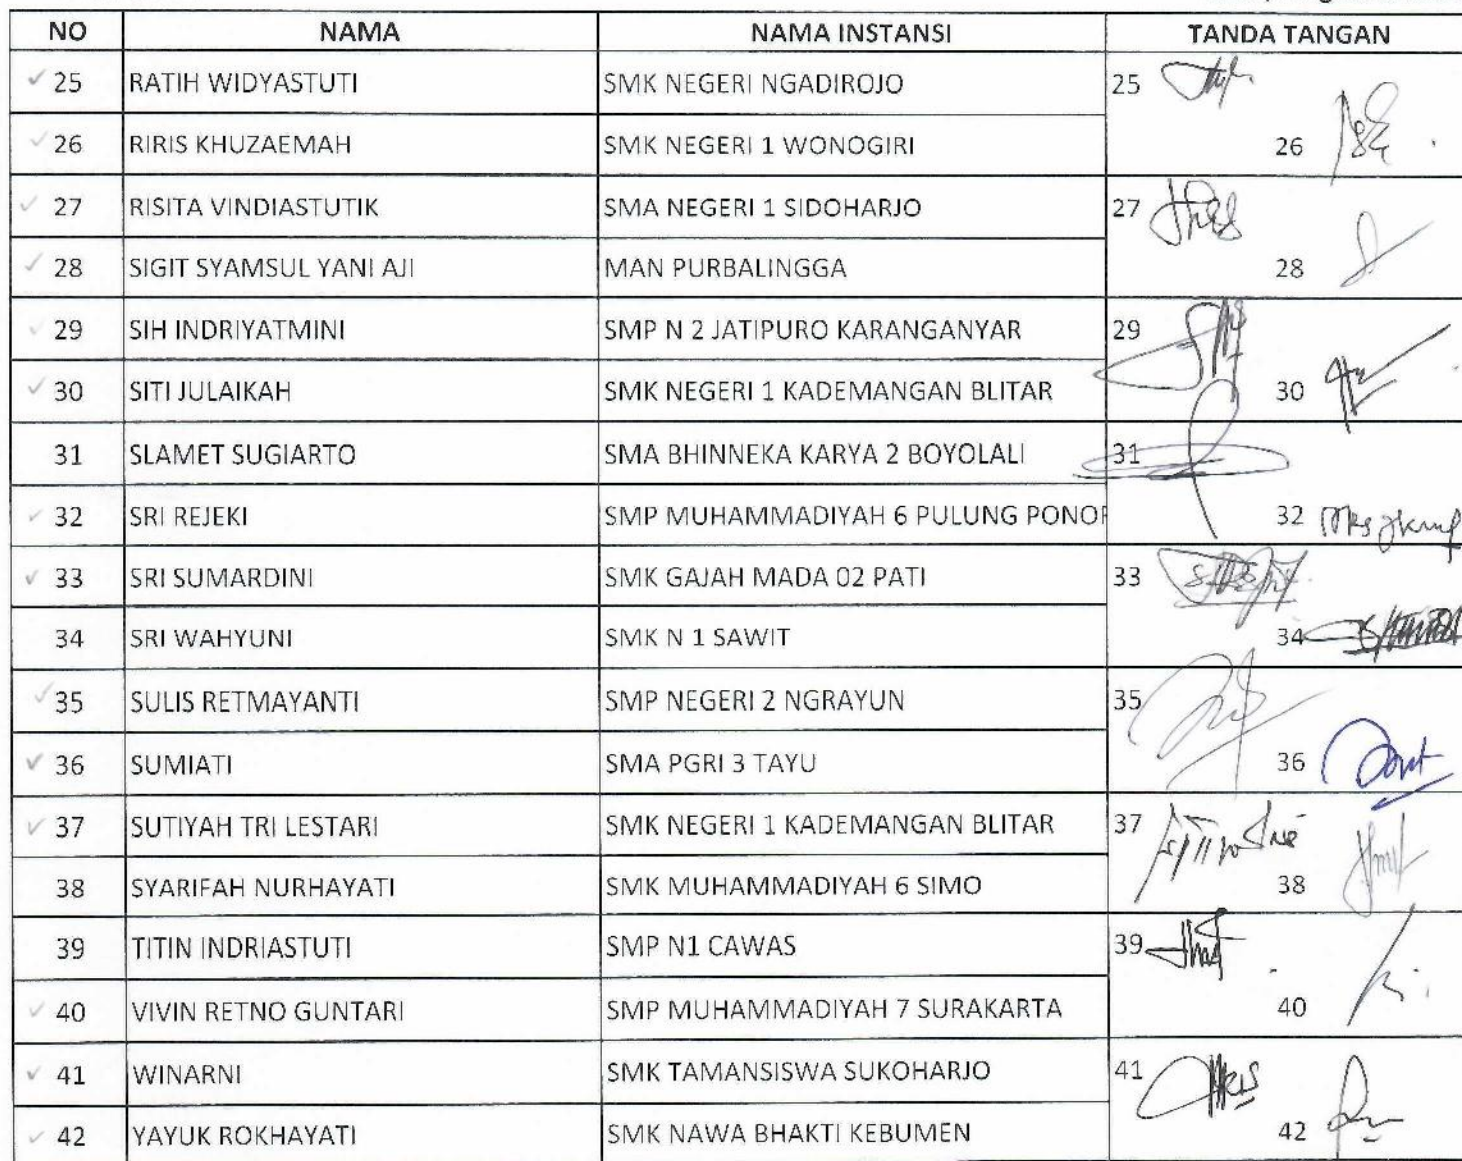 NO NAMA NAMA INSTANSI TANDA TANGAN
25 RATIH WIDYASTUTI SMK NEGERI NGADIROJO 25
26 RIRIS KHUZAEMAH SMK NEGERI 1 WONOGIRI 26
27 RISITA VINDIASTUTIK SMA NEGERI 1 SIDOHARJO 27
28 SIGIT SYAMSUL YANI AJI MAN PURBALINGGA 28
29 SIH INDRIYATMINI SMP N 2 JATIPURO KARANGANYAR 29
30 SITI JULAIKAH SMK NEGERI 1 KADEMANGAN BLITAR 30
31 SLAMET SUGIARTO SMA BHINNEKA KARYA 2 BOYOLALI 31
32 SRI REJEKI SMP MUHAMMADIYAH 6 PULUNG PONOR 32
33 SRI SUMARDINI SMK GAJAH MADA 02 PATI 33
34 SRI WAHYUNI SMK N 1 SAWIT 34
35 SULIS RETMAYANTI SMP NEGERI 2 NGRAYUN 35
36 SUMIATI SMA PGRI 3 TAYU 36
37 SUTIYAH TRI LESTARI SMK NEGERI 1 KADEMANGAN BLITAR 37
38 SYARIFAH NURHAYATI SMK MUHAMMADIYAH 6 SIMO 38
39 TITIN INDRIASTUTI SMP N1 CAWAS 39
40 VIVIN RETNO GUNTARI SMP MUHAMMADIYAH 7 SURAKARTA 40
41 WINARNI SMK TAMANSISWA SUKOHARJO 41
42 YAYUK ROKHAYATI SMK NAWA BHAKTI KEBUMEN 42